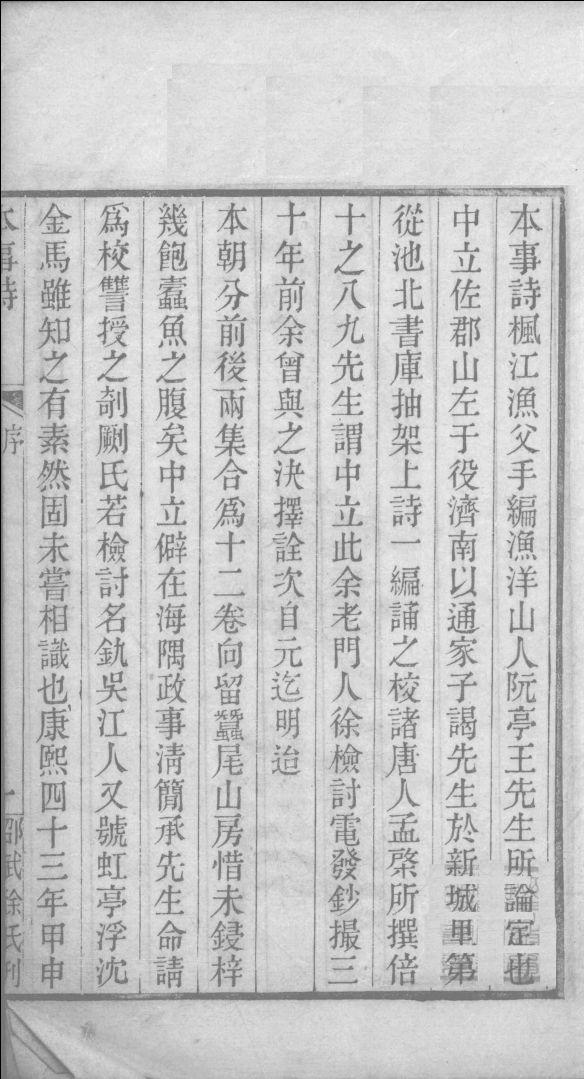 本事詩楓江漁父手編漁洋山人阮亭王先生所論定也
中立佐郡山左于役濟南以通家子謁先生於新城里第
從池北書庫抽架上詩一編誦之校諸唐人孟棨所撰倍
十之八九先生謂中立此余老門人徐檢討電發鈔撮三
十年前余曾與之決擇詮次自元迄明迨
本朝分前後兩集合爲十二卷向留蠶尾山房惜未鋟梓
幾飽蠹魚之腹矣中立僻在海隅政事清簡承先生命請
爲校讐授之剞劂氏若檢討名釚吳江人又號虹亭浮沈
金馬雖知之有素然固未嘗相識也康熙四十三年甲申
本事詩 序 一 邵武徐氏刊